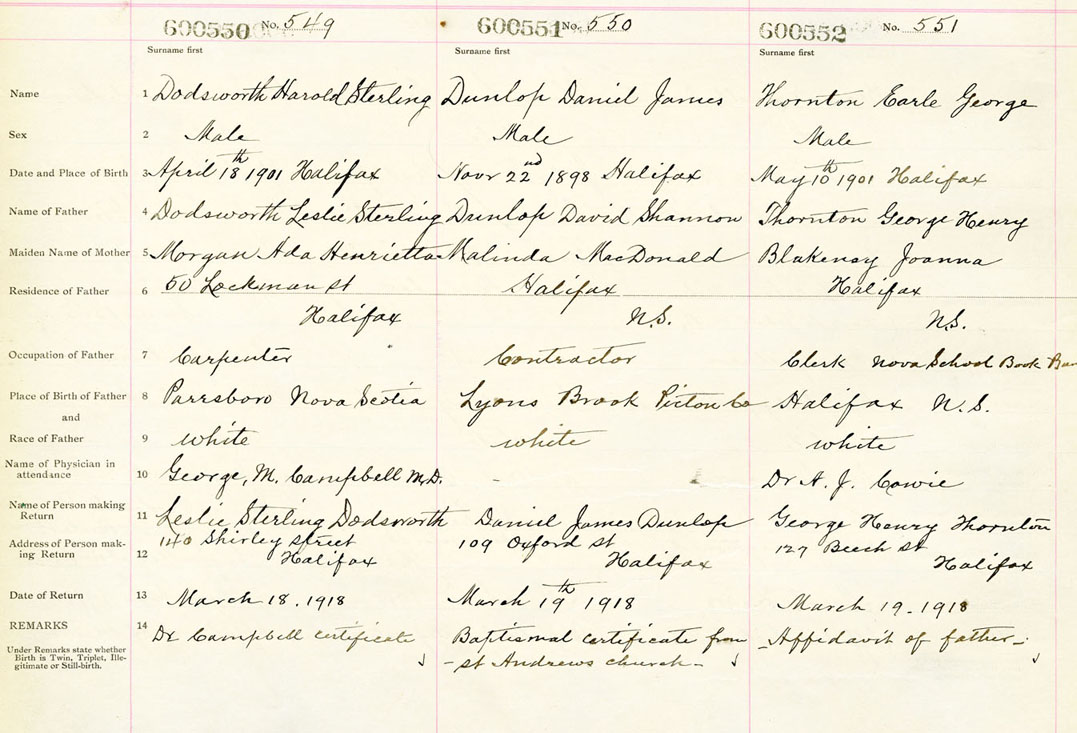 600550 No. 549 600551 No. 550 600552 No. 551
Surname first Surname first Surname first
Name 1 Dodsworth Harold Sterling Dunlop Daniel James Thornton Earle George
Sex 2 Male Male Male
Date and Place of Birth 3 April 18th 1901 Halifax Novr 22nd 1898 Halifax May 10th 1901 Halifax
Name of Father 4 Dodsworth Leslie Sterling Dunlop David Shannon Thornton George Henry
Maiden Name of Mother 5 Morgan Ada Henrietta Malinda MacDonald Blakeney Joanna
Residence of Father 6 50 Lockman st Halifax Halifax
Halifax N.S. N.S.
Occupation of Father 7 Carpenter Contractor Clerk Nova School Book
Place of Birth of Father 8 Parrsboro Nova Scotia Lyons Brook Pictou Co Halifax N.S.
and
Race of Father 9 white white white
Name of Physician in
attendance 10 George, M. Campbell M.D. Dr A. J. Cowie
Name of Person making
Return 11 Leslie Sterling Dodsworth Daniel James Dunlop George Henry Thornton
Address of Person mak- 140 Shirley street 109 Oxford st 127 Beech st
ing Return 12 Halifax Halifax Halifax
Date of Return 13 March 18. 1918 March 19th 1918 March 19. 1918
REMARKS 14 Dr Campbell certificate Baptismal certificate from - Affidavit of father -
Under Remarks state whether - st Andrews church -
Birth is Twin, Triplet, Ille-
gitimate or Still-birth.